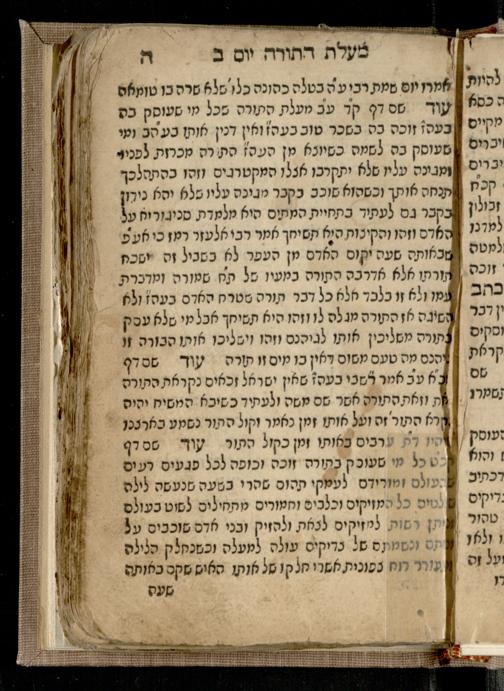 מעלת התורה יום ב ה
אמרו יום שמת רבי ע״ה בטלה כהונה כלו׳ שלא שרה בו טומאה
עוד שם דף ק״ד ע״ב מעלת התורה שכל מי שעוסק בה
בעה״ז זוכה בה בשכר טוב בעה״ז ואין דנין אותו בע״הב ומי
שעוסק בה לשמה כשיוצא מן העה״ז התורה מכרזת לפניו
ומגינה עליו שלא יתקרבו אצלו המקטרגים וזהו בהתהלכך
תנחה אותך וכשהוא שוכב בקבר מגינה עליו שלא יהא נידון
בקבר גם לעתיד בתחיית המתים היא מלמדת סניגוריא על
האדם וזהו והקיצות היא תשיחך אמר רבי אלעזר רמז כי אע״פ
שבאותה שעה יקום האדם מן העפר לא בשביל זה ישכח
תורתו אלא אדרבה התורה במעיו של ת״ח שמורה ומדברת
עמו ולא זו בלבד אלא כל דבר תורה שטרח האדם בעה״ז ולא
השיגה אז התורה מגלה לו וזהו היא תשיחך אבל מי שלא עסק
בתורה משליכין אותו לגיהנם וזהו וישליכו אותו הבורה זו
גיהנם מה טעם משום דאין בו מים זו תורה עוד שם דף
ע״ב אמר רשבי בעה״ז שאין ישראל זכאים נקראת התורה
את וזאת התורה אשר שם משה ולעתיד כשיבא המשיח יהיה
נקרא התור׳ זה ועל אותו זמן נאמר וקול התור נשמע בארצנו
ויהיו ד״ת ערבים באותו זמן כקול התור עוד שם דף
כל מי שעוסק בתורה זוכה וכופה לכל פגעים רעים
שבעולם ומורידם לעמקי תהום שהרי בשעה שנעשה לילה
שולטים כל המזיקים וכלבים וחמורים מתחילים לשוט בעולם
וניתן רשות למזיקים לצאת ולהזיק ובני אדם שוכבים על
מטתם ונשמתם של צדיקים עולה למעלה וכשנחלק הלילה
מעורר רוח צפונית אשרי חלקו של אותו האיש שקם באותה
שעה